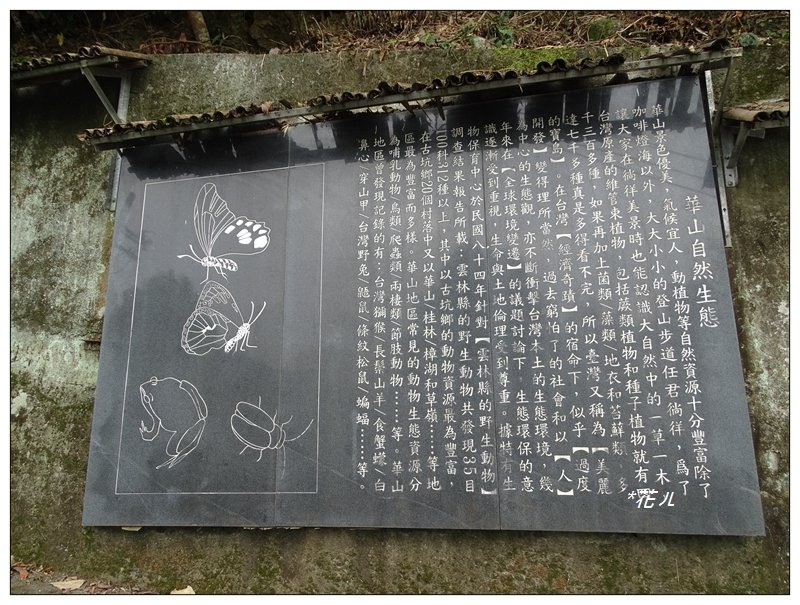 華山自然生態
華山景色優美，氣候宜人，動植物等自然資源十分豐富除了
咖啡燈海以外，大大小小的登山步道任君徜徉，爲了
讓大家在徜徉美景時也能認識大自然中的一草一木
台灣原產的維管束植物，包括蕨類植物和種子植物就有
千三百多種，如果再加上菌類/藻類/地衣和苔蘚類，多
達七千多種真是多得看不完，所以臺灣又稱為【美麗
的寶島】。在台灣【經濟奇蹟】的宿命下，似乎【過度
開發】變得理所當然，過去窮怕了的社會和以【人】
為中心的生態觀，亦不斷衝擊台灣本土的生態環境，幾
年來在【全球環境變遷】的議題討論下，生態環保的意
識逐漸受到重視，生命與土地倫理受到尊重。據特有生
物保育中心於民國八十四年針對【雲林縣的野生動物】
調查結果報告所載：雲林縣的野生動物共發現35目
100科312種以上，其中以古坑鄉的動物資源最為豐富，
在古坑鄉20個村落中又以華山/桂林/樟湖和草嶺……等地
區最為豐富而多樣。華山地區常見的動物生態資源分
為哺乳動物/鳥類/爬蟲類/兩棲類/節肢動物……等。華山
地區曾發現記錄的有：台灣獼猴/長鬃山羊/食蟹蠓/白
鼻心/穿山甲/台灣野兔/鼴鼠/條紋松鼠/蝙蝠……等。
花儿